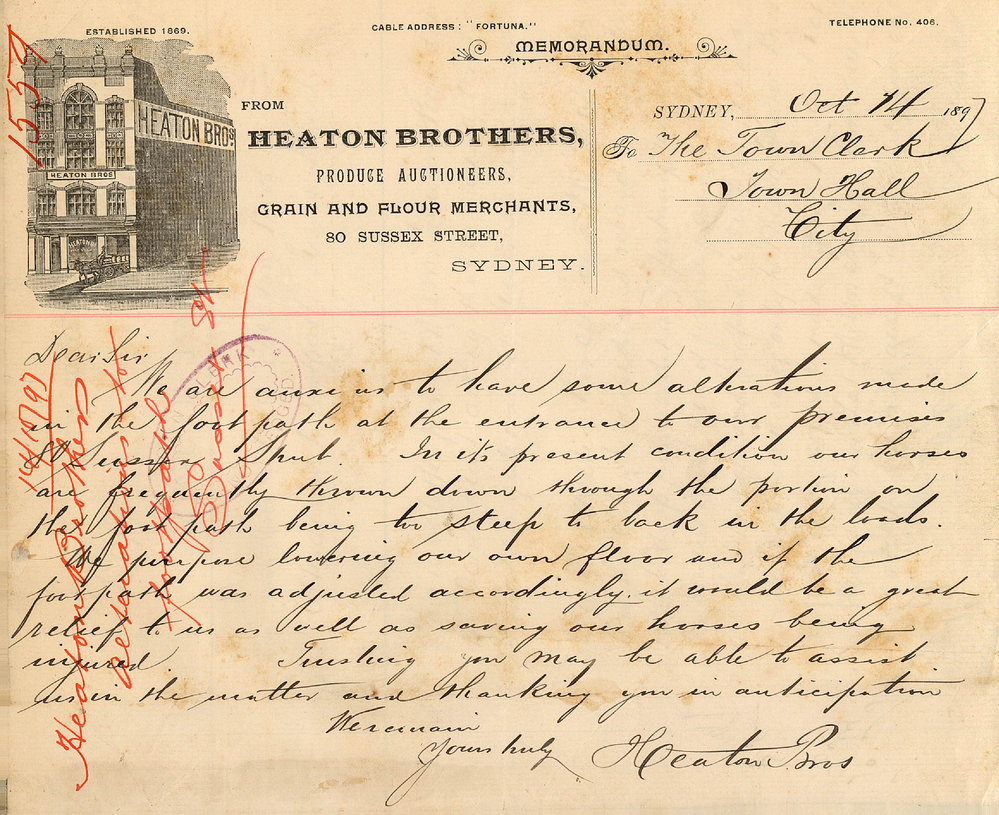 1557
ESTABLISHED 1869.
CABLE ADDRESS: "FORTUNA."
TELEPHONE No. 406.
MEMORANDUM.
HEATON BROS
HEATON BROS
HEATON
FROM
HEATON BROTHERS,
PRODUCE AUCTIONEERS,
GRAIN AND FLOUR MERCHANTS,
80 SUSSEX STREET,
SYDNEY.
SYDNEY, Oct 14 1897
To The Town Clark
Town Hall
City
Dear Sir
We are anxious to have some alterations made
in the foot path at the entrance to our premises
80 Sussex Street. In it's present condition our horses
are frequently thrown down through the portion on
the foot path being too steep to back in the loads.
We purpose lowering our own floor and if the
foot path was adjusted accordingly it would be a great
relief to us as well as saving our horses being
injured. Trusting you may be able to assist
us in the matter and thanking you in anticipation
We remain
Yours truly
Heaton Bros
14/10/97
Heaton Brothers
alterations to
footpath
Sussex St
CLERK